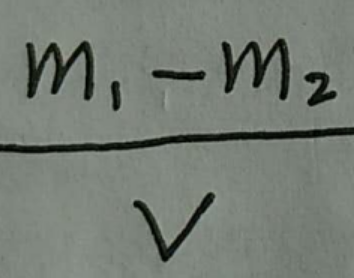 m₁ - m₂
V